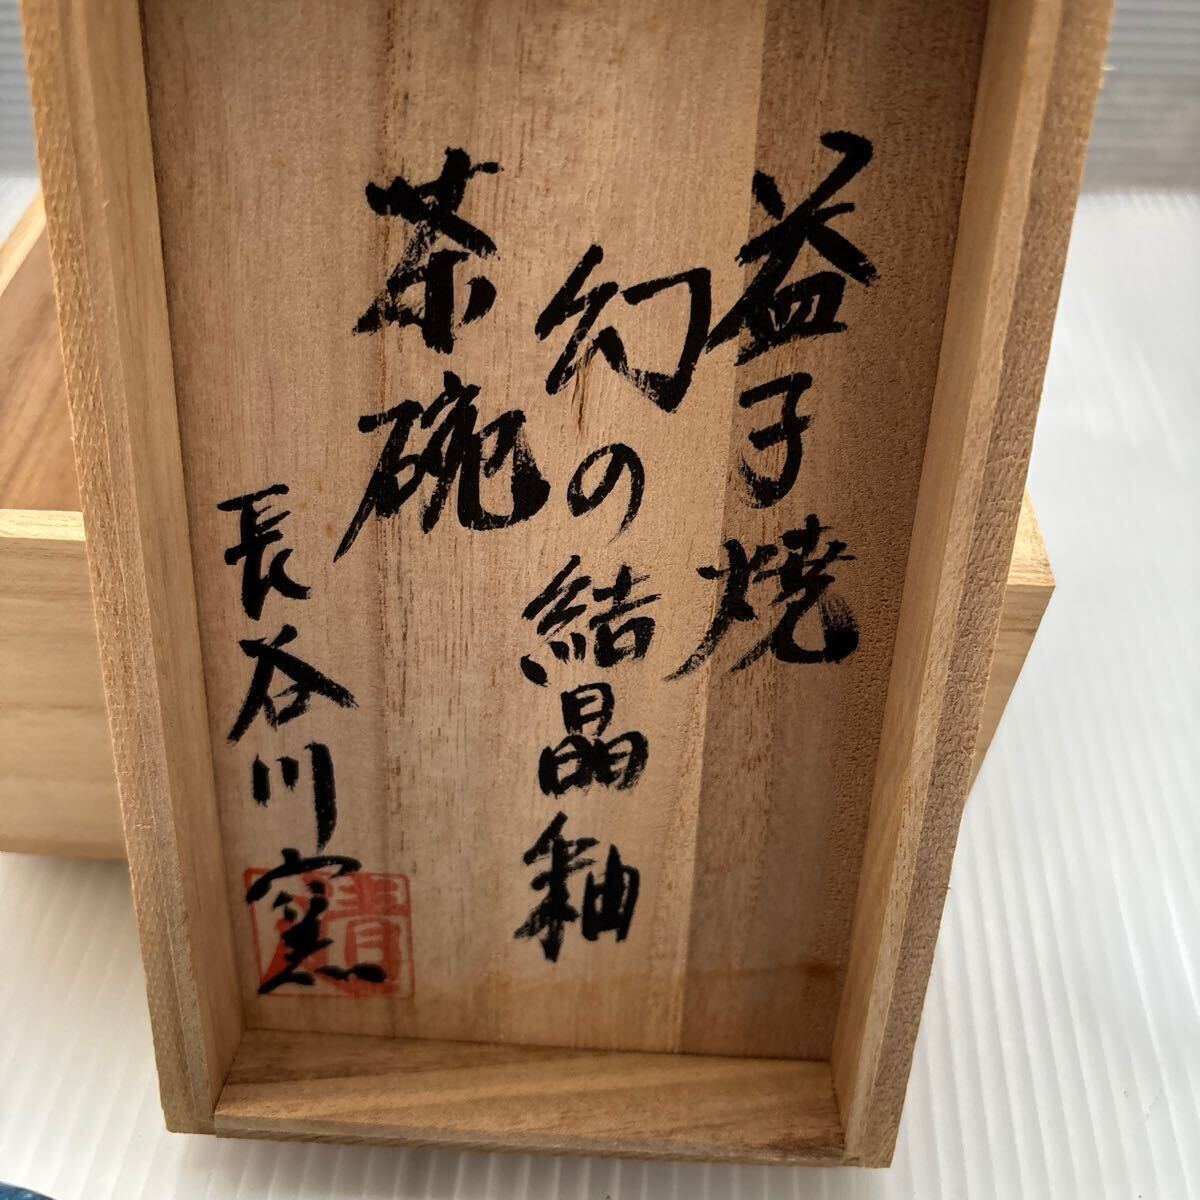 益子焼
幻の結晶釉
茶碗
長谷川窯